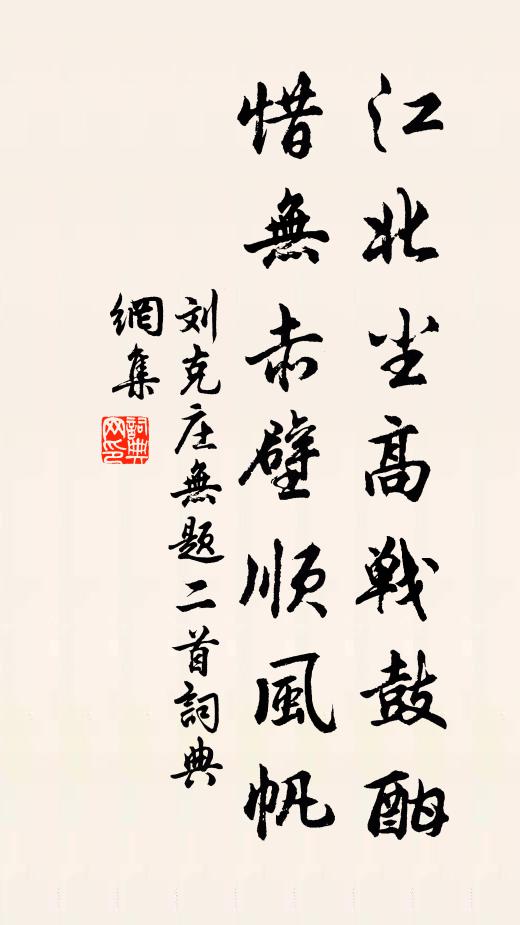 江北尘高戦鼓酣
惜無赤壁順風帆
刘克庄無題二首詞典
網集
詞典
网印